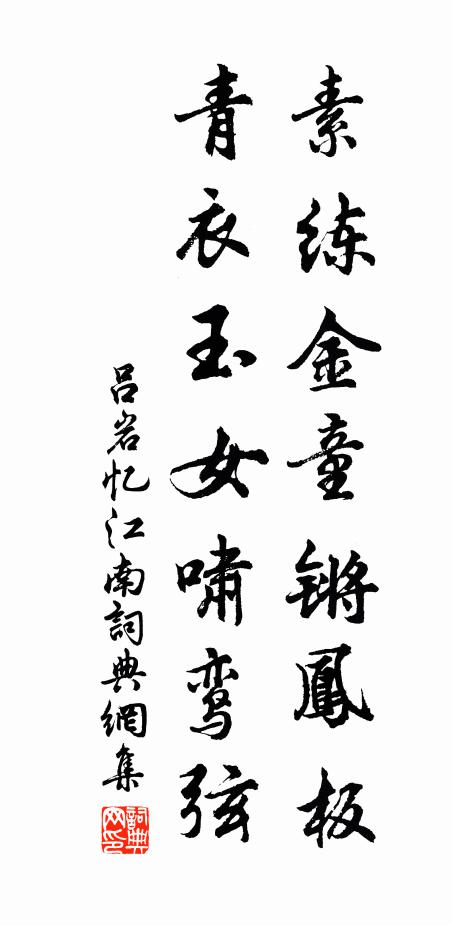 素练金童锵鳳板
青衣玉女啸鸾弦
吕岩忆江南詞典網集
詞典
网印